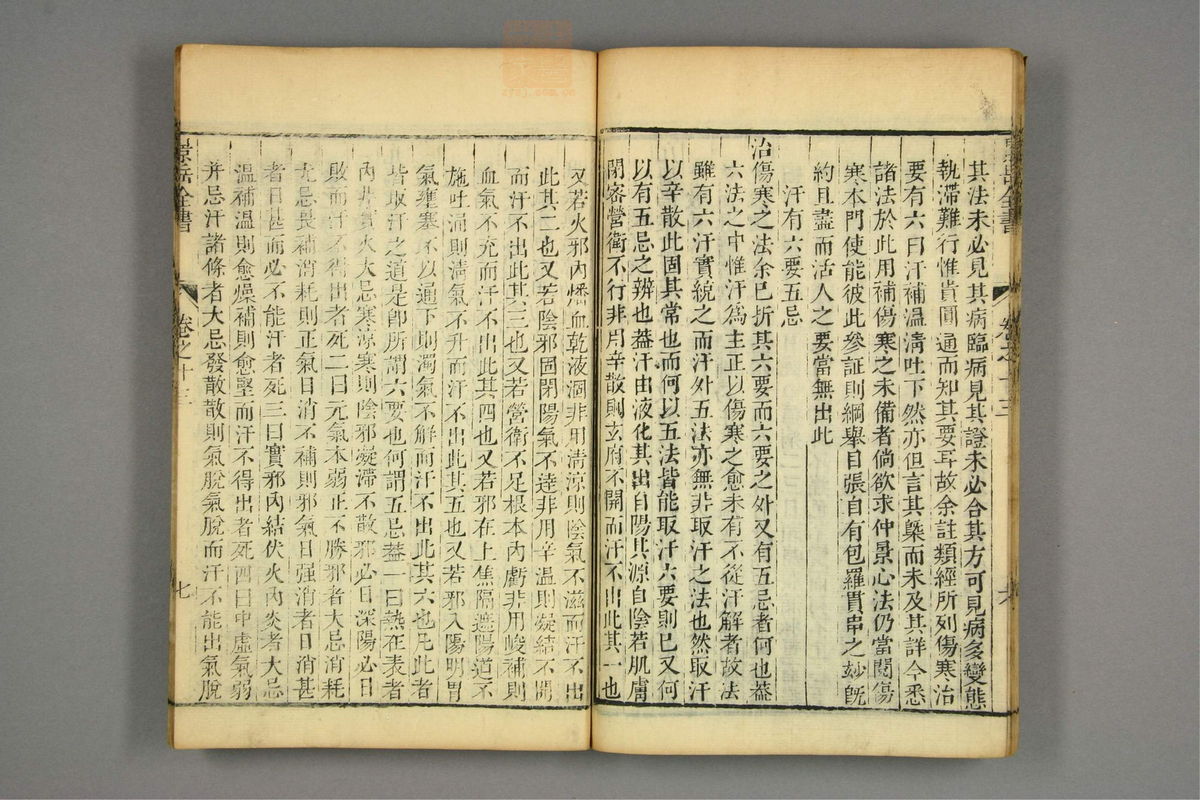 其法未必見其病臨病見其證未必合其方可見病多變態
執滯難行惟貴圓通而知其要耳故余註類經所列傷寒治
要有六曰汗補溫淸吐下然亦但言其槩而未及其詳今悉
諸法於此用補傷寒之未備者倘欲求仲景心法仍當閱傷
寒本門使能彼此參証則綱舉目張自有包羅貫串之妙旣
約且盡而活人之要當無出此
汗有六要五忌
治傷寒之法余已折其六要而六要之外又有五忌者何也葢
六法之中惟汗爲主正以傷寒之愈未有不從汗解者故法
雖有六汗實統之而汗外五法亦無非取汗之法也然取汗
以辛散此固其常也而何以五法皆能取汗六要則已又何
以有五忌之辨也葢汗由液化其出自陽其源自陰若肌膚
閉密營衛不行非用辛散則玄府不開而汗不出此其一也
又若火邪內燔血乾液涸非用清涼則陰氣不滋而汗不出
此其二也又若陰邪固閉陽氣不達非用辛溫則凝結不開
而汗不出此其三也又若營衛不足根本內虧非用峻補則
血氣不充而汗不出此其四也又若邪在上焦隔遮陽道不
施吐涌則淸氣不升而汗不出此其五也又若邪入陽明胃
氣壅塞不以通下則濁氣不解而汗不出此其六也凡此者
皆取汗之道是卽所謂六要也何謂五忌葢一曰熱在表者
內非實火大忌寒涼寒則陰邪凝滯不散邪必日深陽必日
敗而汗不得出者死二曰元氣本弱正不勝邪者大忌消耗
尤忌畏補消耗則正氣日消不補則邪氣日强消者日消甚
者日甚而必不能汗者死三曰實邪內結伏火內炎者大忌
溫補溫則愈燥補則愈堅而汗不得出者死四曰中虛氣弱
并忌汗諸條者大忌發散散則氣脫氣脫而汗不能出氣脫
景岳全書
卷之十三
七